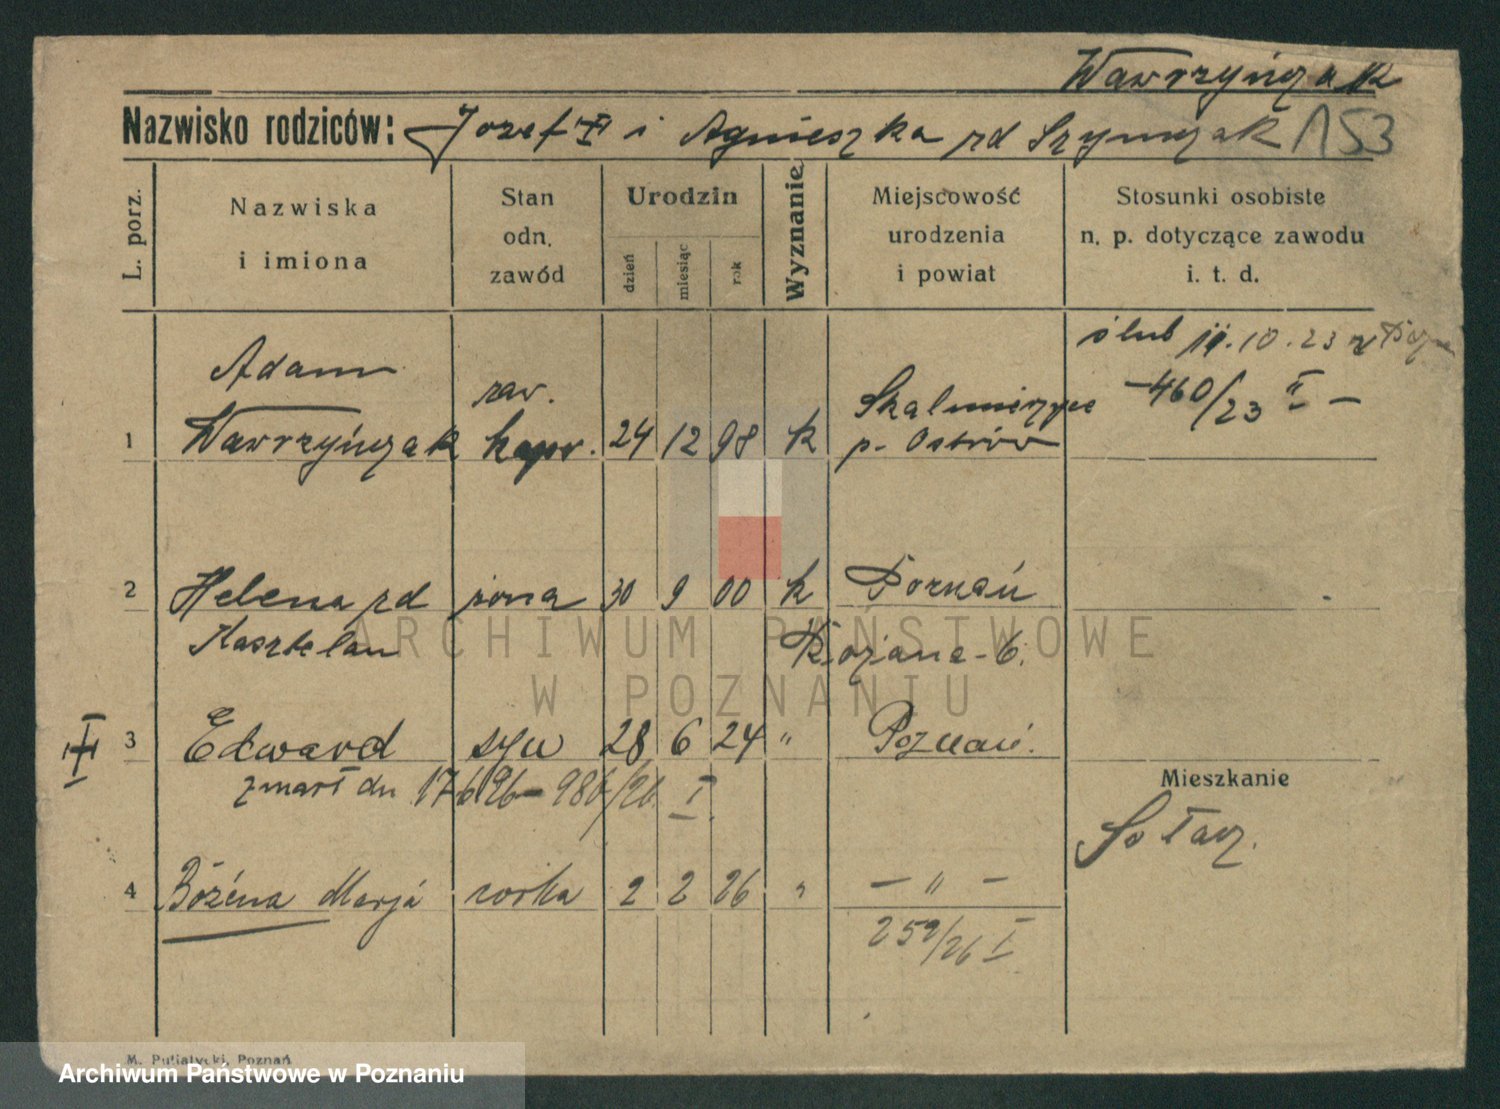 Wawrzyńczak
Nazwisko rodziców: Jozef i Agnieszka rd Szymczak 153
L. porz.
Nazwiska i imiona
Stan odn. zawód
Urodzin
dzień miesiąc rok
Wyznanie
Miejscowość urodzenia i powiat
Stosunki osobiste n. p. dotyczące zawodu i. t. d.
ślub 11.10.23
-460/23 II -
Adam zaw. Skalmierzyce
1 Wawrzyńczak kapr. 24 12 98 k p. Ostrów
2 Helena rd żona 30 9 00 k Poznań
Kasztelan Różana - 6.
3 Edward syn 28 6 24 " Poznań.
zmarł dn 17 6 26 - 986/26 I
Mieszkanie
Sołacz.
4 Bożena Marja córka 2 2 26 " - " -
259/26 I
M. Putiatycki, Poznań
ARCHIWUM PAŃSTWOWE
W POZNANIU
Archiwum Państwowe w Poznaniu